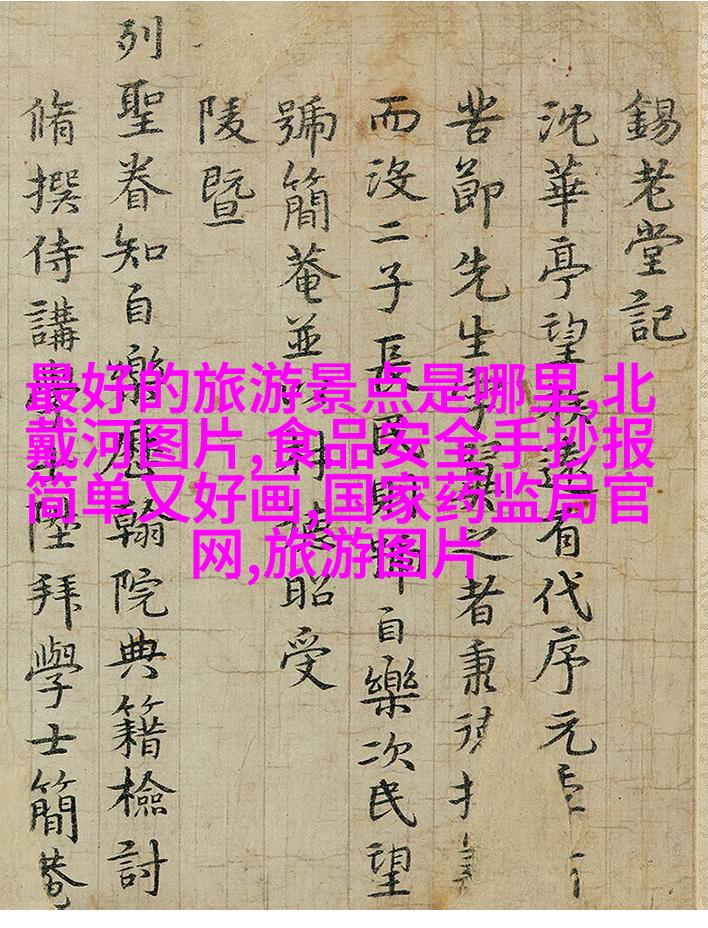 錫老堂記
沈華亭望族遠有代序元
苦節先生之者秉
而沒二子長民則號自樂次民望
號簡菴並昭受
陵暨
列聖眷知自樂歷翰院典籍檢討
脩撰侍講陞拜學士簡菴
最好的旅游景点是哪里,北
戴河图片,食品安全手抄报
简单又好画,国家药监局官
网,旅游图片